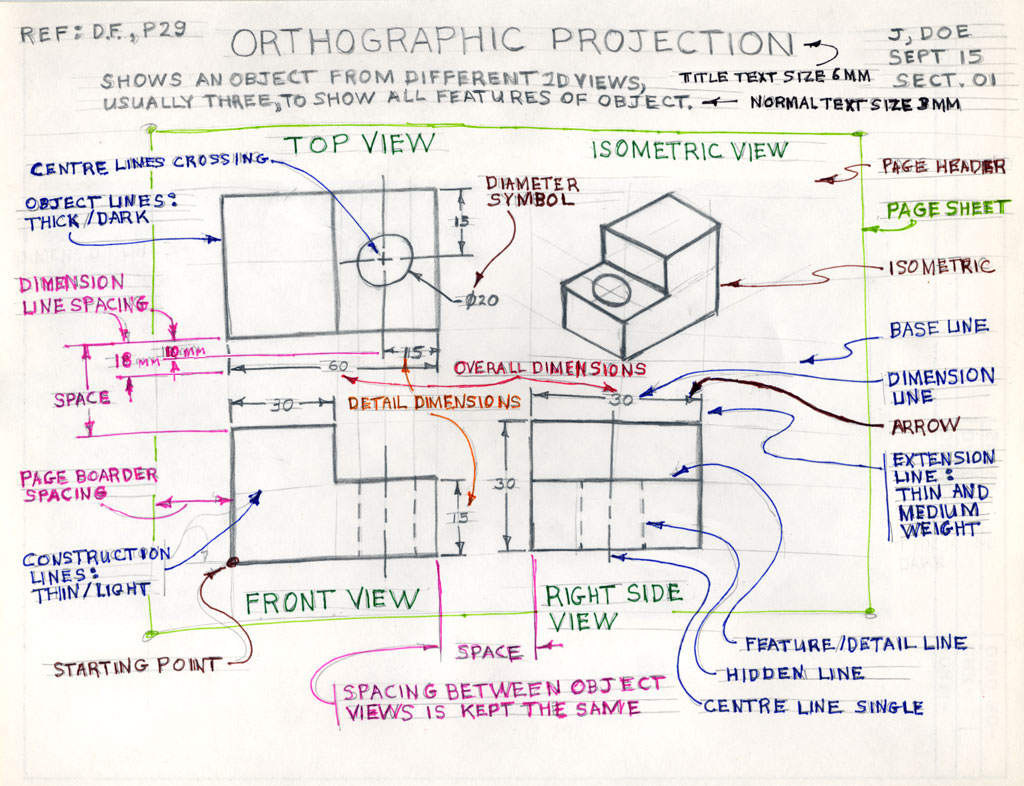 REF: D.F., P29
ORTHOGRAPHIC PROJECTION
J, DOE
SEPT 15
SECT. 01
SHOWS AN OBJECT FROM DIFFERENT 2D VIEWS,
USUALLY THREE, TO SHOW ALL FEATURES OF OBJECT.
TITLE TEXT SIZE 6MM
NORMAL TEXT SIZE 3MM
TOP VIEW
ISOMETRIC VIEW
CENTRE LINES CROSSING
OBJECT LINES:
THICK/DARK
DIAMETER
SYMBOL
PAGE HEADER
PAGE SHEET
ISOMETRIC
15
Ø20
DIMENSION
LINE SPACING
18 MM
10 MM
15
60
SPACE
OVERALL DIMENSIONS
DETAIL DIMENSIONS
BASE LINE
DIMENSION
LINE
ARROW
30
30
EXTENSION
LINE:
THIN AND
MEDIUM
WEIGHT
PAGE BOARDER
SPACING
15
30
CONSTRUCTION
LINES:
THIN/LIGHT
FRONT VIEW
RIGHT SIDE
VIEW
STARTING POINT
SPACE
SPACING BETWEEN OBJECT
VIEWS IS KEPT THE SAME
FEATURE/DETAIL LINE
HIDDEN LINE
CENTRE LINE SINGLE